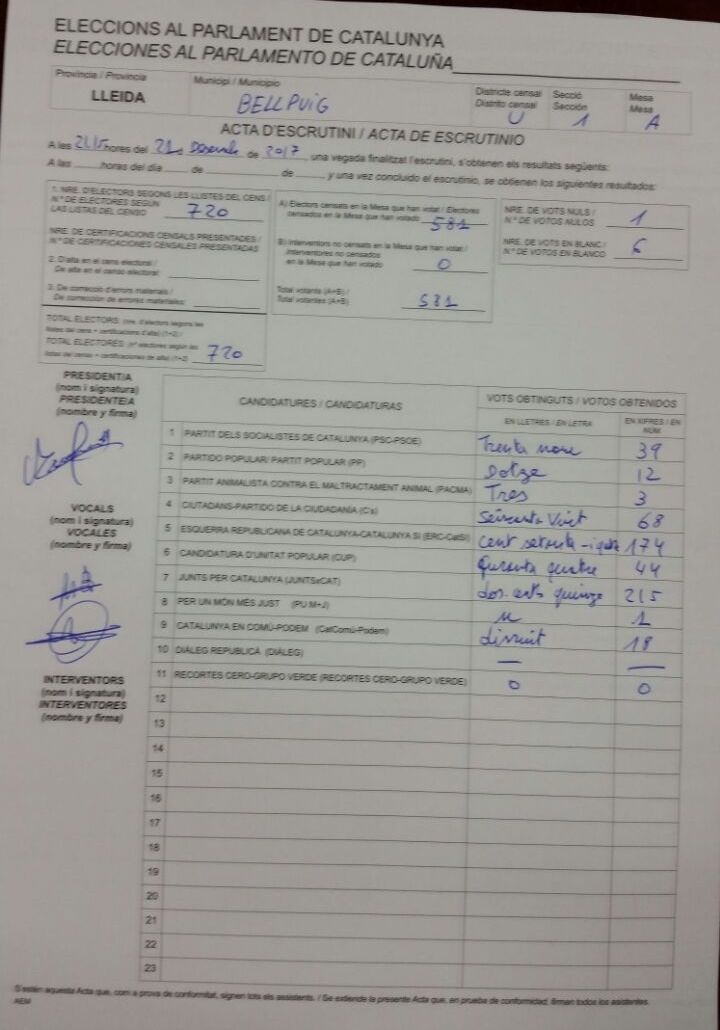 ELECCIONS AL PARLAMENT DE CATALUNYA
ELECCIONES AL PARLAMENTO DE CATALUÑA
Província / Provincia Municipi / Municipio Districte censal Secció Mesa
Distrito censal Sección Mesa
LLEIDA BELLPUIG U 1 A
ACTA D'ESCRUTINI / ACTA DE ESCRUTINIO
A les hores del 21 de 2017 una vegada finalitzat l'escrutini, s'obtenen els resultats següents:
A las horas del día de de y una vez concluido el escrutinio, se obtienen los siguientes resultados:
1. NRE. D'ELECTORS SEGONS LES LLISTES DEL CENS /
N.º DE ELECTORES SEGÚN
LAS LISTAS DEL CENSO 720
NRE. DE CERTIFICACIONS CENSALS PRESENTADES /
N.º DE CERTIFICACIONES CENSALES PRESENTADAS
2. D'alta en el cens electoral /
De alta en el censo electoral:
3. De correcció d'errors materials /
De corrección de errores materiales:
TOTAL ELECTORS: (nre. d'electors segons les
llistes del cens + certificacions d'alta) (1+2) /
TOTAL ELECTORES: (nº electores según las
listas del censo + certificaciones de alta) (1+2) 720
A) Electors censats en la Mesa que han votat / Electores
censados en la Mesa que han votado 581
B) Interventors no censats en la Mesa que han votat /
Interventores no censados
en la Mesa que han votado 0
Total votants (A+B) /
Total votantes (A+B) 581
NRE. DE VOTS NULS /
N.º DE VOTOS NULOS 1
NRE. DE VOTS EN BLANC /
N.º DE VOTOS EN BLANCO 6
PRESIDENT/A
(nom i signatura)
PRESIDENTE/A
(nombre y firma)
VOCALS
(nom i signatura)
VOCALES
(nombre y firma)
INTERVENTORS
(nom i signatura)
INTERVENTORES
(nombre y firma)
CANDIDATURES / CANDIDATURAS VOTS OBTINGUTS / VOTOS OBTENIDOS
EN LLETRES / EN LETRA EN XIFRES / EN NÚM.
1 PARTIT DELS SOCIALISTES DE CATALUNYA (PSC-PSOE) Trenta nou 39
2 PARTIDO POPULAR/ PARTIT POPULAR (PP) Dotze 12
3 PARTIT ANIMALISTA CONTRA EL MALTRACTAMENT ANIMAL (PACMA) Tres 3
4 CIUTADANS-PARTIDO DE LA CIUDADANÍA (C's) 68
5 ESQUERRA REPUBLICANA DE CATALUNYA-CATALUNYA SÍ (ERC-CatSí) cent setanta-i 174
6 CANDIDATURA D'UNITAT POPULAR (CUP) Quranta quatre 44
7 JUNTS PER CATALUNYA (JUNTSxCAT) dos-cents quinze 215
8 PER UN MÓN MÉS JUST (PUM+J) u 1
9 CATALUNYA EN COMÚ-PODEM (CatComú-Podem) disnuit 18
10 DIÀLEG REPUBLICÀ (DIÀLEG) — —
11 RECORTES CERO-GRUPO VERDE (RECORTES CERO-GRUPO VERDE) 0 0
12
13
14
15
16
17
18
19
20
21
22
23
S'estén aquesta Acta que, com a prova de conformitat, signen tots els assistents. / Se extiende la presente Acta que, en prueba de conformidad, firman todos los asistentes.